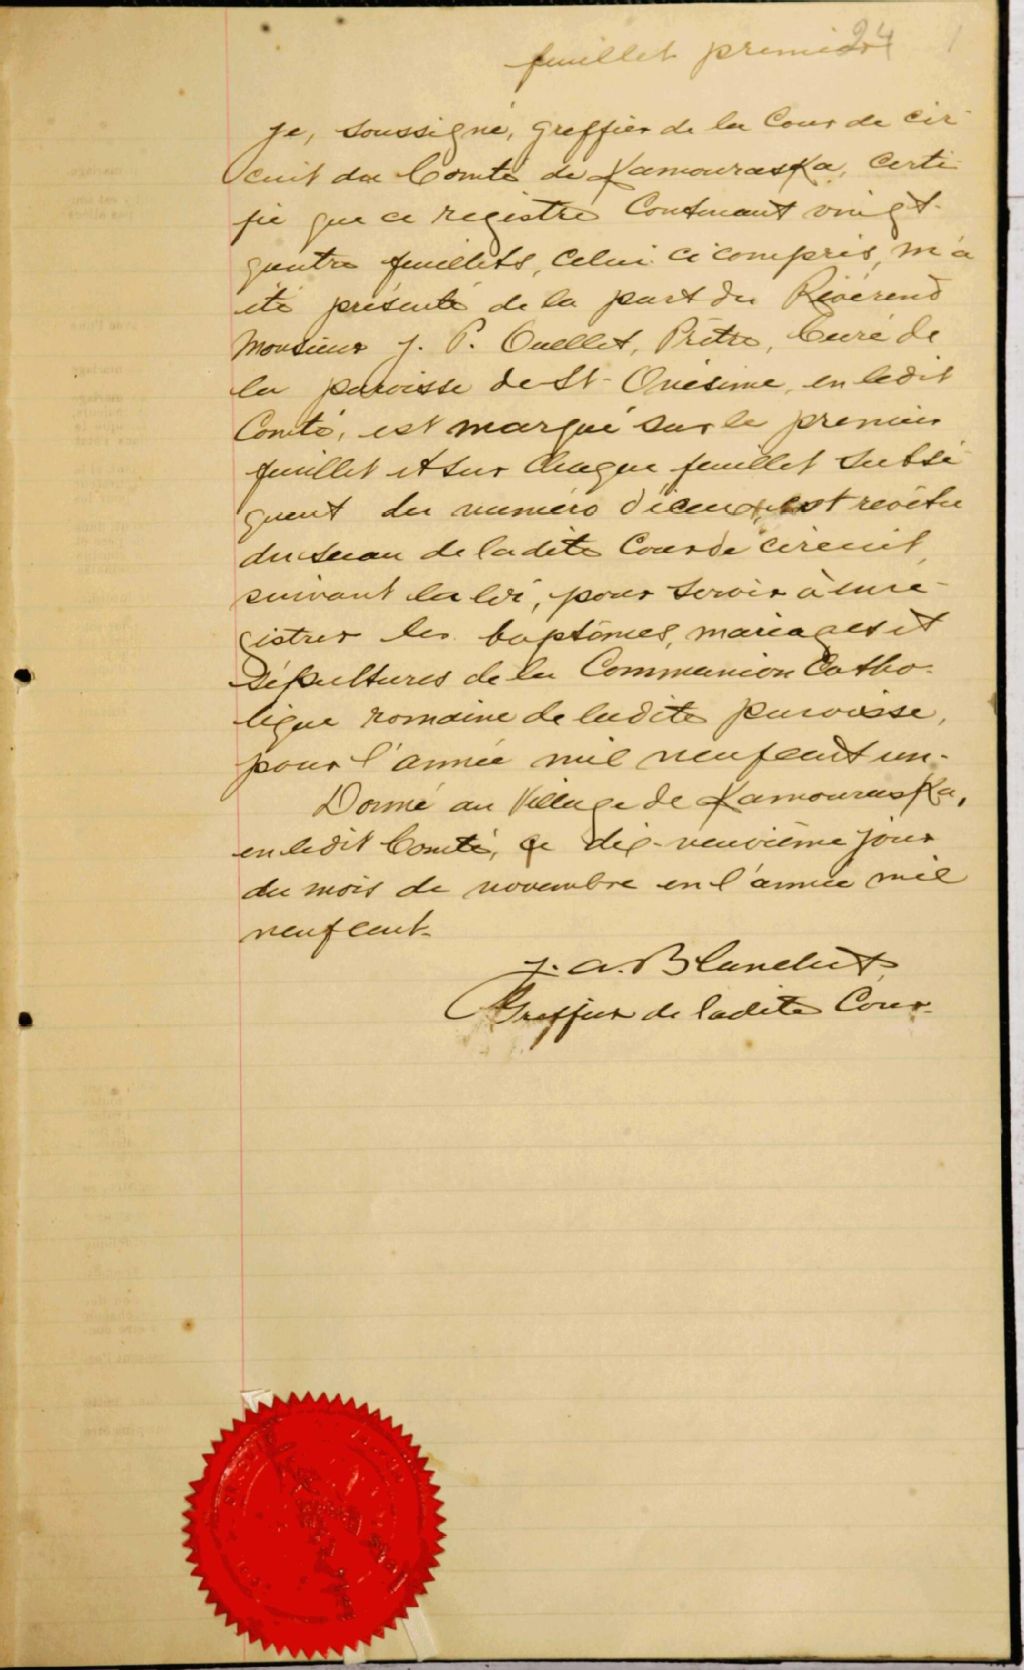 feuillet premier 24 1
Je, soussigné, Greffier de la Cour de cir-
cuit du Comté de Kamouraska, certi-
fie que ce registre Contenant vingt-
quatre feuillets, celui ci compris, m'a
été présenté de la part du Révérend
Monsieur J. P. Ouellet, Prêtre, Curé de
la paroisse de St-Onésime, en ledit
Comté, est marqué sur le premier
feuillet et sur chaque feuillet subsé-
quent du numéro d'iceux, est revêtu
du sceau de ladite Cour de circuit,
suivant la loi, pour servir à enre-
gistrer les baptêmes, mariages et
sépultures de la Communion Catho-
lique romaine de ladite paroisse,
pour l'année mil neuf cent un.
Donné au Village de Kamouraska,
en ledit Comté, ce dix-neuvième jour
du mois de novembre en l'année mil
neuf cent.
J. A. Blanchet
Greffier de ladite Cour.